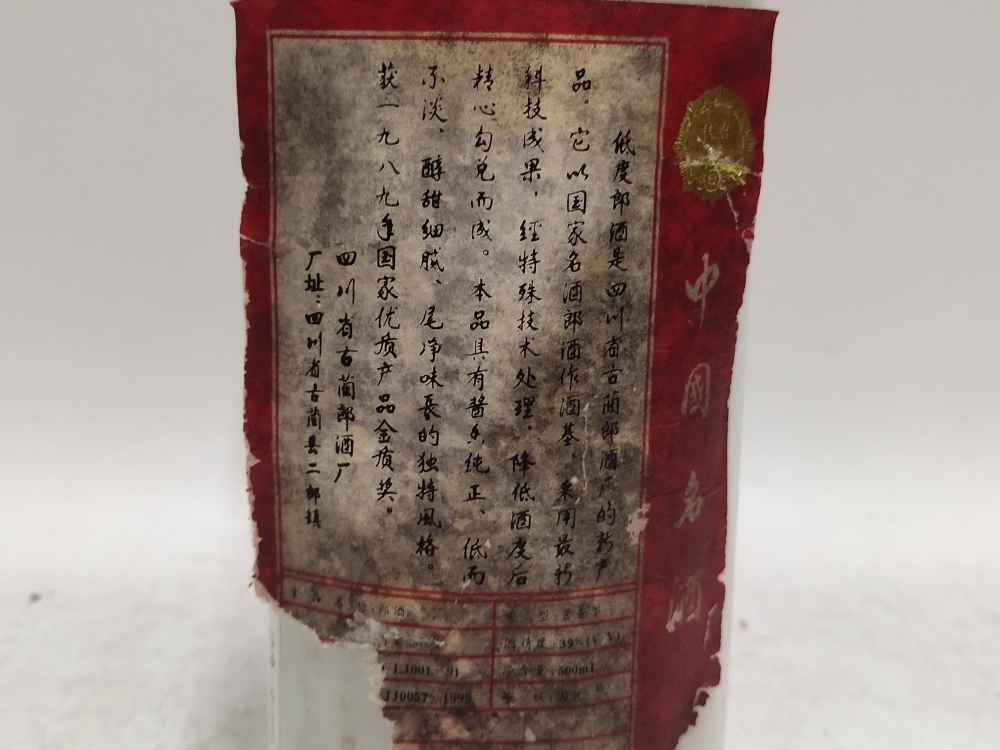 中國名酒
低度郎酒是四川省古蔺郎酒厂的新产
品，它以国家名酒郎酒作酒基、采用最新
科技成果，经特殊技术处理，降低酒度后
精心勾兑而成。本品具有酱香纯正、低而
不淡、醇甜细腻、尾净味長的独特風格。
获一九八九年国家优质产品金质奖。
四川省古蔺郎酒厂
厂址：四川省古蔺县二郎镇
郎酒
香型:酱香型
酒精度:39%(V/V)
净含量:500ml